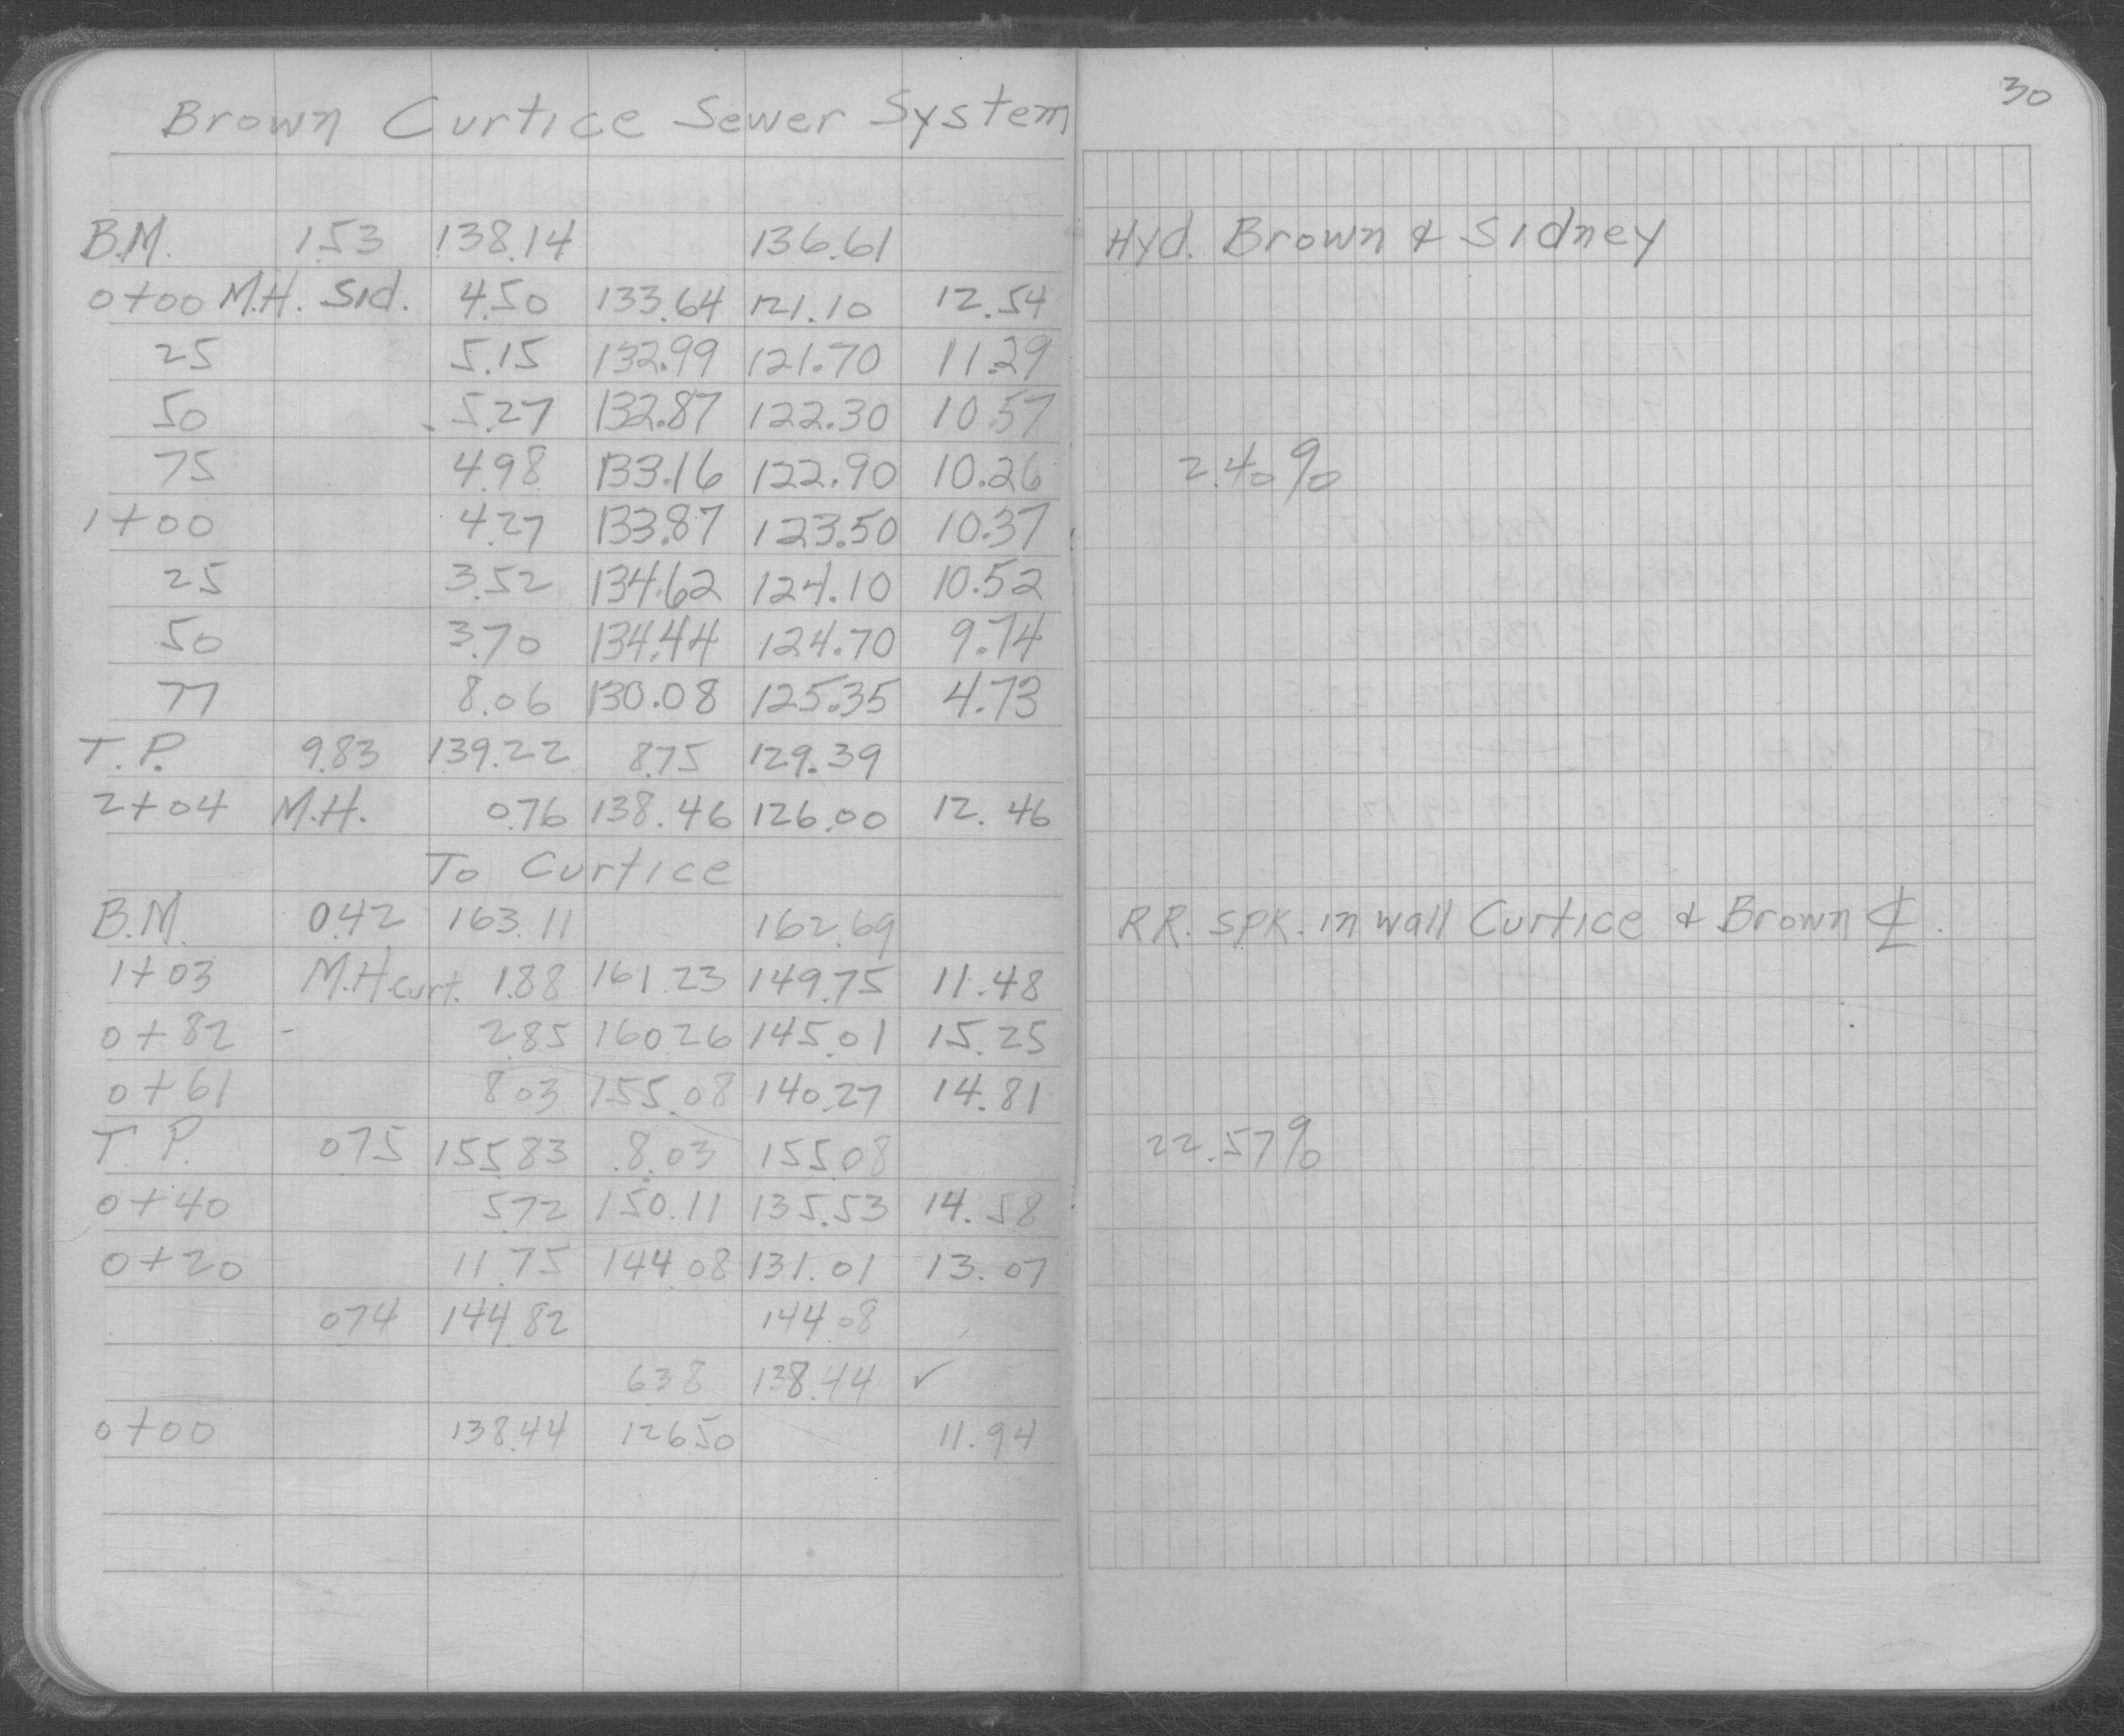 30
Brown Curtice Sewer System
B.M. 1.53 138.14 136.61 Hyd. Brown & Sidney
0+00 M.H. Sid. 4.50 133.64 121.10 12.54
25 5.15 132.99 121.70 11.29
50 5.27 132.87 122.30 10.57
75 4.98 133.16 122.90 10.26 2.40%
1+00 4.27 133.87 123.50 10.37
25 3.52 134.62 124.10 10.52
50 3.70 134.44 124.70 9.74
77 8.06 130.08 125.35 4.73
T.P. 9.83 139.22 8.75 129.39
2+04 M.H. 0.76 138.46 126.00 12.46
To Curtice
B.M. 0.42 163.11 162.69 RR. SPK. in wall Curtice & Brown ℄.
1+03 M.H. Curt. 1.88 161.23 149.75 11.48
0+82 - 2.85 160.26 145.01 15.25
0+61 8.03 155.08 140.27 14.81
T.P. 0.75 155.83 8.03 155.08 22.57%
0+40 5.72 150.11 135.53 14.58
0+20 11.75 144.08 131.01 13.07
0.74 144.82 144.08
6.38 138.44 ✓
0+00 138.44 126.50 11.94